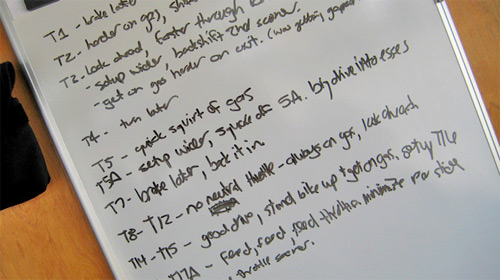 T1 - brake later
T2 - harder on gas,
T3 - look ahead, faster through
- setup wider, backshift 2nd sooner.
- get on gas harder on exit. (was getting gapped
T4 - turn later
T5 - quick squirt of gas
T5A - setup wider, square off 5A. big drive into esses
T7 - brake later, back it in.
T8 - T12 - no neutral throttle - always on gas, look ahead
T14 - T15 - good drive, stand bike up & get on gas, setup T16
T17A - feed, feed, feed throttle minimize rear slide
throttle sooner.